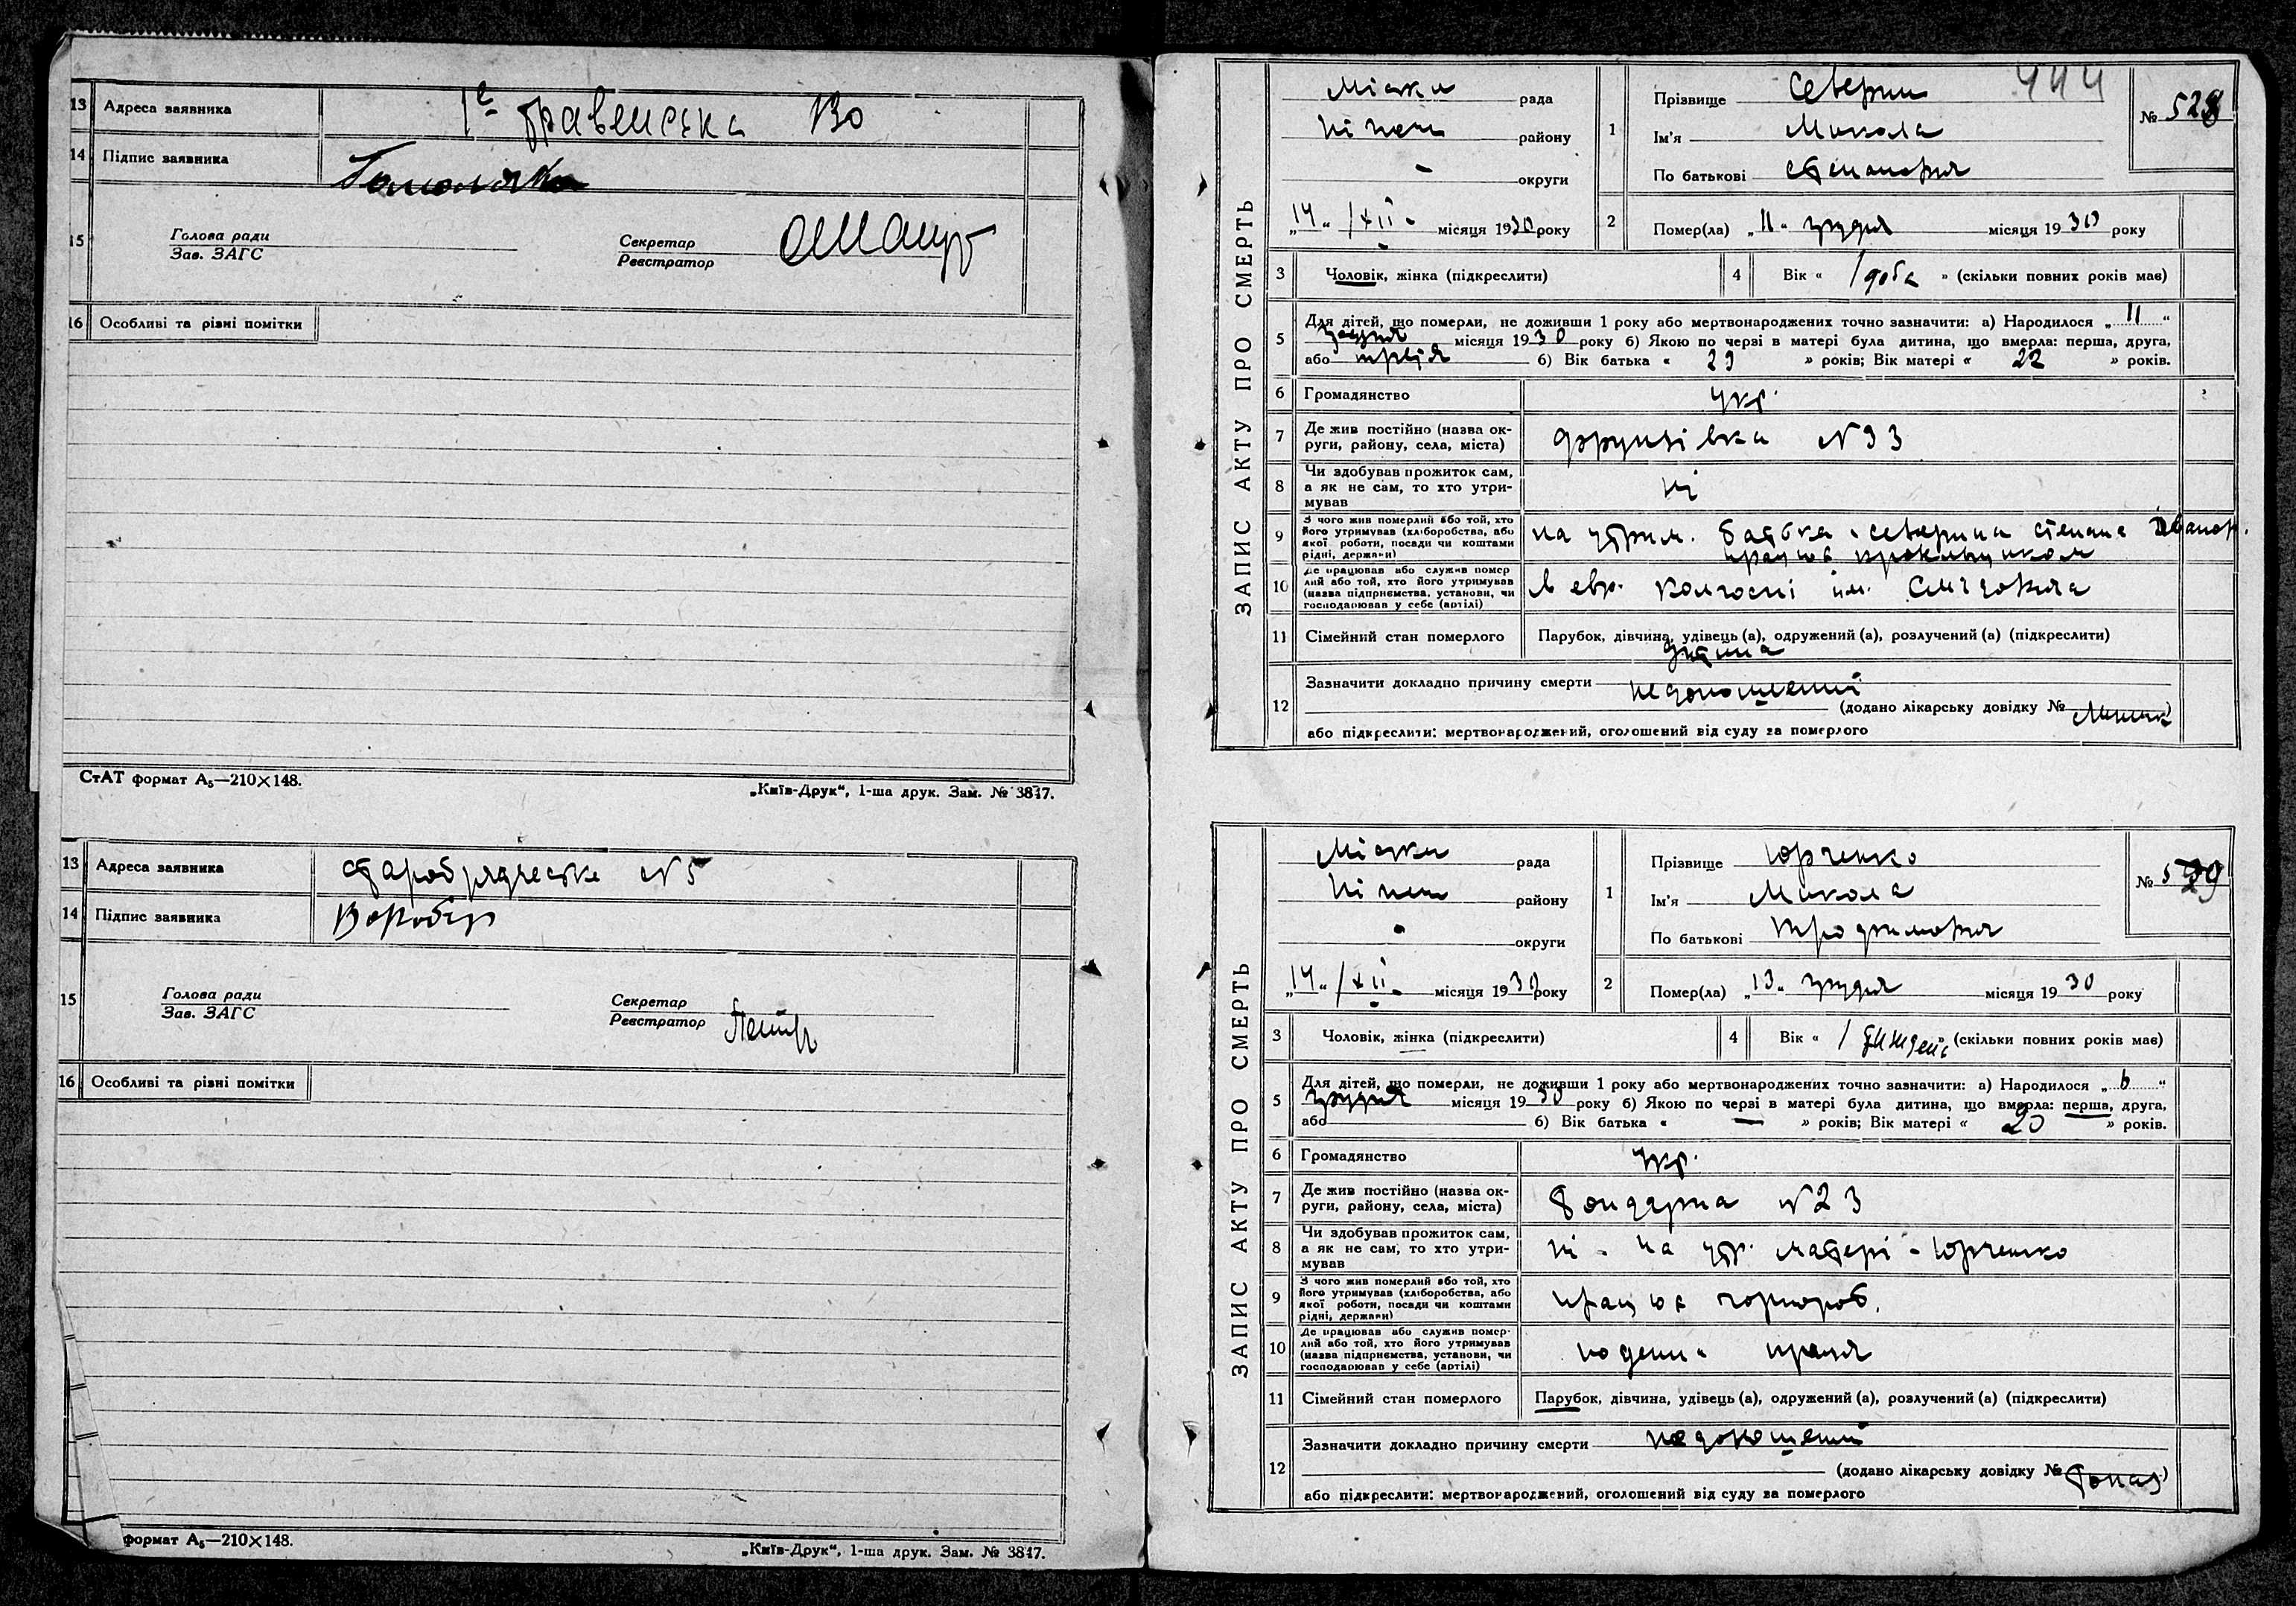 13 Адреса заявника
14 Підпис заявника
15 Голова ради
Зав. ЗАГС
Секретар
Реєстратор
16 Особливі та різні помітки
СтАТ формат А₅—210×148.
„Київ-Друк“, 1-ша друк. Зам. № 3847.
13 Адреса заявника № 5
14 Підпис заявника
15 Голова ради
Зав. ЗАГС
Секретар
Реєстратор
16 Особливі та різні помітки
формат А₅—210×148.
„Київ-Друк“, 1-ша друк. Зам. № 3847.
444
ЗАПИС АКТУ ПРО СМЕРТЬ
Міськ рада
району
- округи
„14“ /XII- місяця 1930 року
1 Прізвище Северин
Ім'я Микола
По батькові Степанович
№ 528
2 Помер(ла) „11“ грудня місяця 1930 року
3 Чоловік, жінка (підкреслити)
4 Вік « 1 доба » (скільки повних років має)
5 Для дітей, що померли, не доживши 1 року або мертвонароджених точно зазначити: а) Народилося „11“
грудня місяця 1930 року б) Якою по черзі в матері була дитина, що вмерла: перша, друга,
або третя б) Вік батька « 29 » років; Вік матері « 22 » років.
6 Громадянство Укр.
7 Де жив постійно (назва ок-
руги, району, села, міста) Фрунзівка №93
8 Чи здобував прожиток сам,
а як не сам, то хто утри-
мував ні
9 З чого жив померлий або той, хто
його утримував (хліборобства, або
якої роботи, посади чи коштами
рідні, держави) на утрим. батька - Северина Степана Іванов.
10 Де працював або служив помер
лий або той, хто його утримував
(назва підприємства, установи, чи
господарював у себе (артілі) в евр. колгоспі ім.
11 Сімейний стан померлого Парубок, дівчина, удівець (а), одружений (а), розлучений (а) (підкреслити)
дитина
12 Зазначити докладно причину смерти недоношений
(додано лікарську довідку № )
або підкреслити: мертвонароджений, оголошений від суду за померлого
ЗАПИС АКТУ ПРО СМЕРТЬ
Міськ рада
району
округи
„14“ /XII- місяця 1930 року
1 Прізвище Юрченко
Ім'я Микола
По батькові Трофимович
№ 529
2 Помер(ла) „13“ грудня місяця 1930 року
3 Чоловік, жінка (підкреслити)
4 Вік « 1 тиждень » (скільки повних років має)
5 Для дітей, що померли, не доживши 1 року або мертвонароджених точно зазначити: а) Народилося „6“
грудня місяця 1930 року б) Якою по черзі в матері була дитина, що вмерла: перша, друга,
або б) Вік батька « — » років; Вік матері « 20 » років.
6 Громадянство Укр.
7 Де жив постійно (назва ок-
руги, району, села, міста) Бондарна №23
8 Чи здобував прожиток сам,
а як не сам, то хто утри-
мував ні - на утр. матері - Юрченко
9 З чого жив померлий або той, хто
його утримував (хліборобства, або
якої роботи, посади чи коштами
рідні, держави) працює чорнороб.
10 Де працював або служив помер-
лий або той, хто його утримував
(назва підприємства, установи, чи
господарював у себе (артілі) поденн. праця
11 Сімейний стан померлого Парубок, дівчина, удівець (а), одружений (а), розлучений (а) (підкреслити)
12 Зазначити докладно причину смерти недоношений
(додано лікарську довідку № )
або підкреслити: мертвонароджений, оголошений від суду за померлого